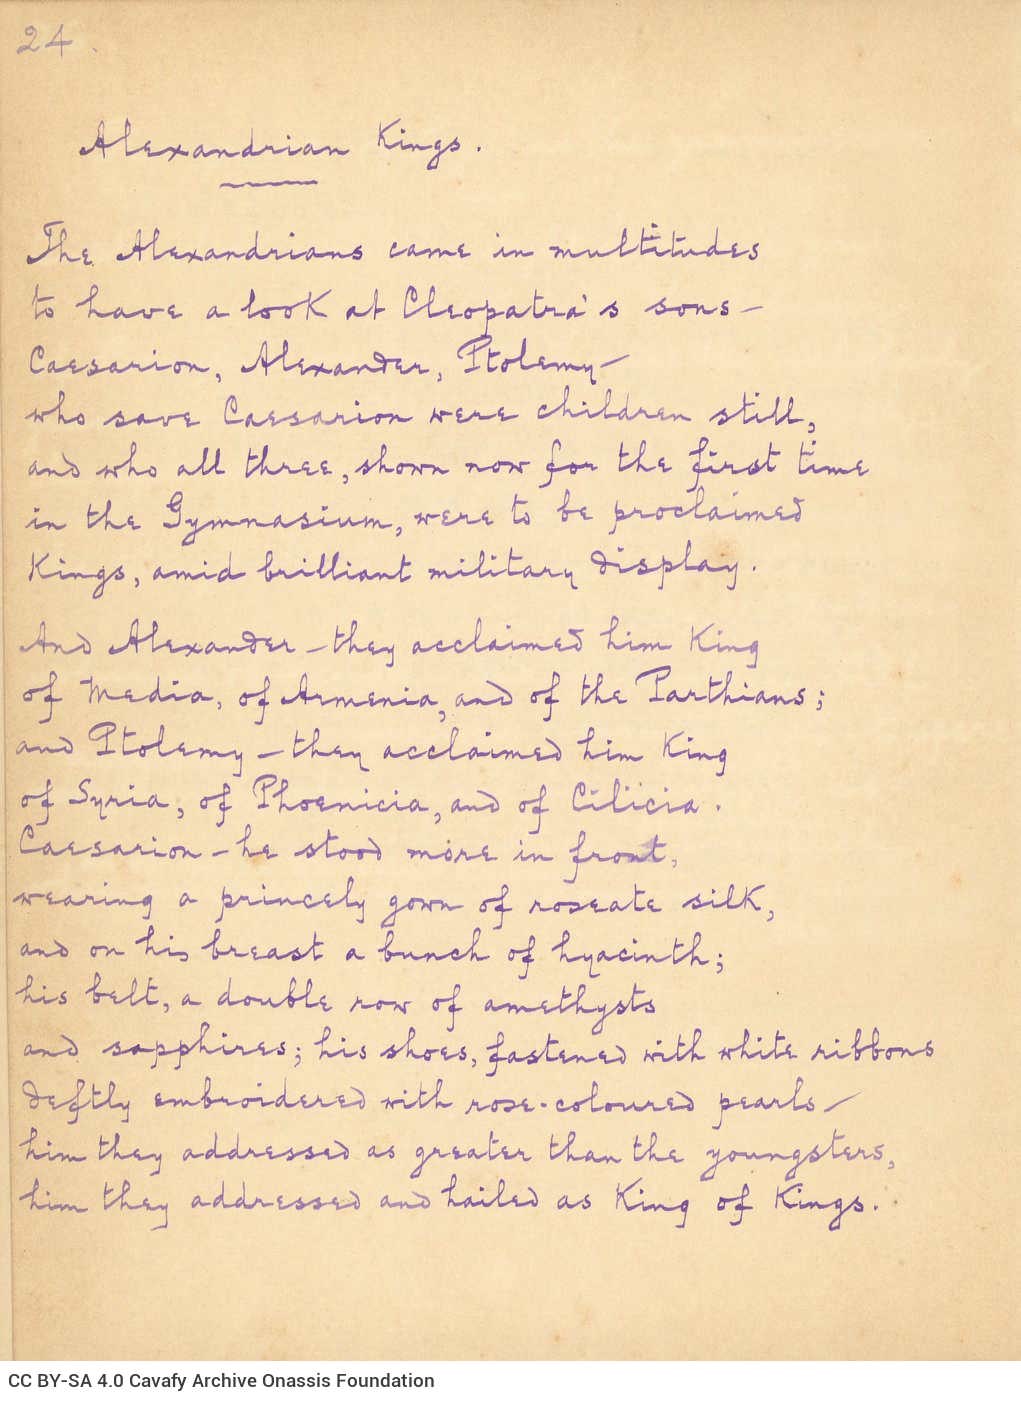 24.
Alexandrian Kings.
The Alexandrians came in multitudes
to have a look at Cleopatra's sons—
Caesarion, Alexander, Ptolemy—
who save Caesarion were children still,
and who all three, shown now for the first time
in the Gymnasium, were to be proclaimed
Kings, amid brilliant military display.
And Alexander—they acclaimed him King
of Media, of Armenia, and of the Parthians;
and Ptolemy—they acclaimed him King
of Syria, of Phoenicia, and of Cilicia.
Caesarion—he stood more in front,
wearing a princely gown of roseate silk,
and on his breast a bunch of hyacinth;
his belt, a double row of amethysts
and sapphires; his shoes, fastened with white ribbons
deftly embroidered with rose-coloured pearls—
him they addressed as greater than the youngsters,
him they addressed and hailed as King of Kings.
CC BY-SA 4.0 Cavafy Archive Onassis Foundation